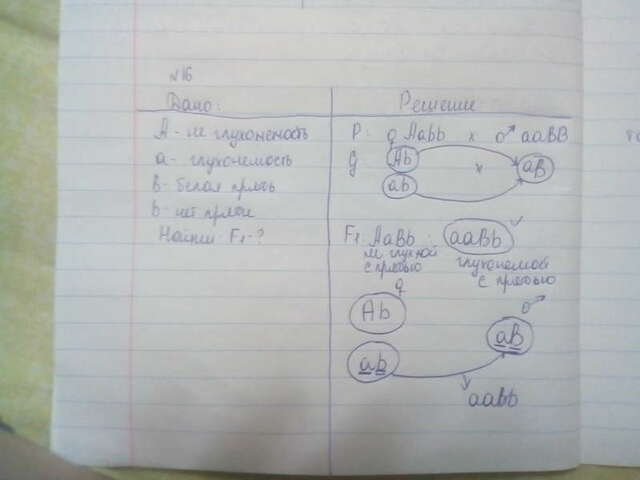 №16
Дано:
Решение:
A - не глухонемость
a - глухонемость
B - белая прядь
b - нет пряди
Найти: F₁ - ?
P: ♀ Aabb x ♂ aaBB
g: Ab x aB
ab
F₁: AaBb : aaBb
не глухой с прядью
глухонемой с прядью
♀
Ab
♂
aB
ab
aaBb